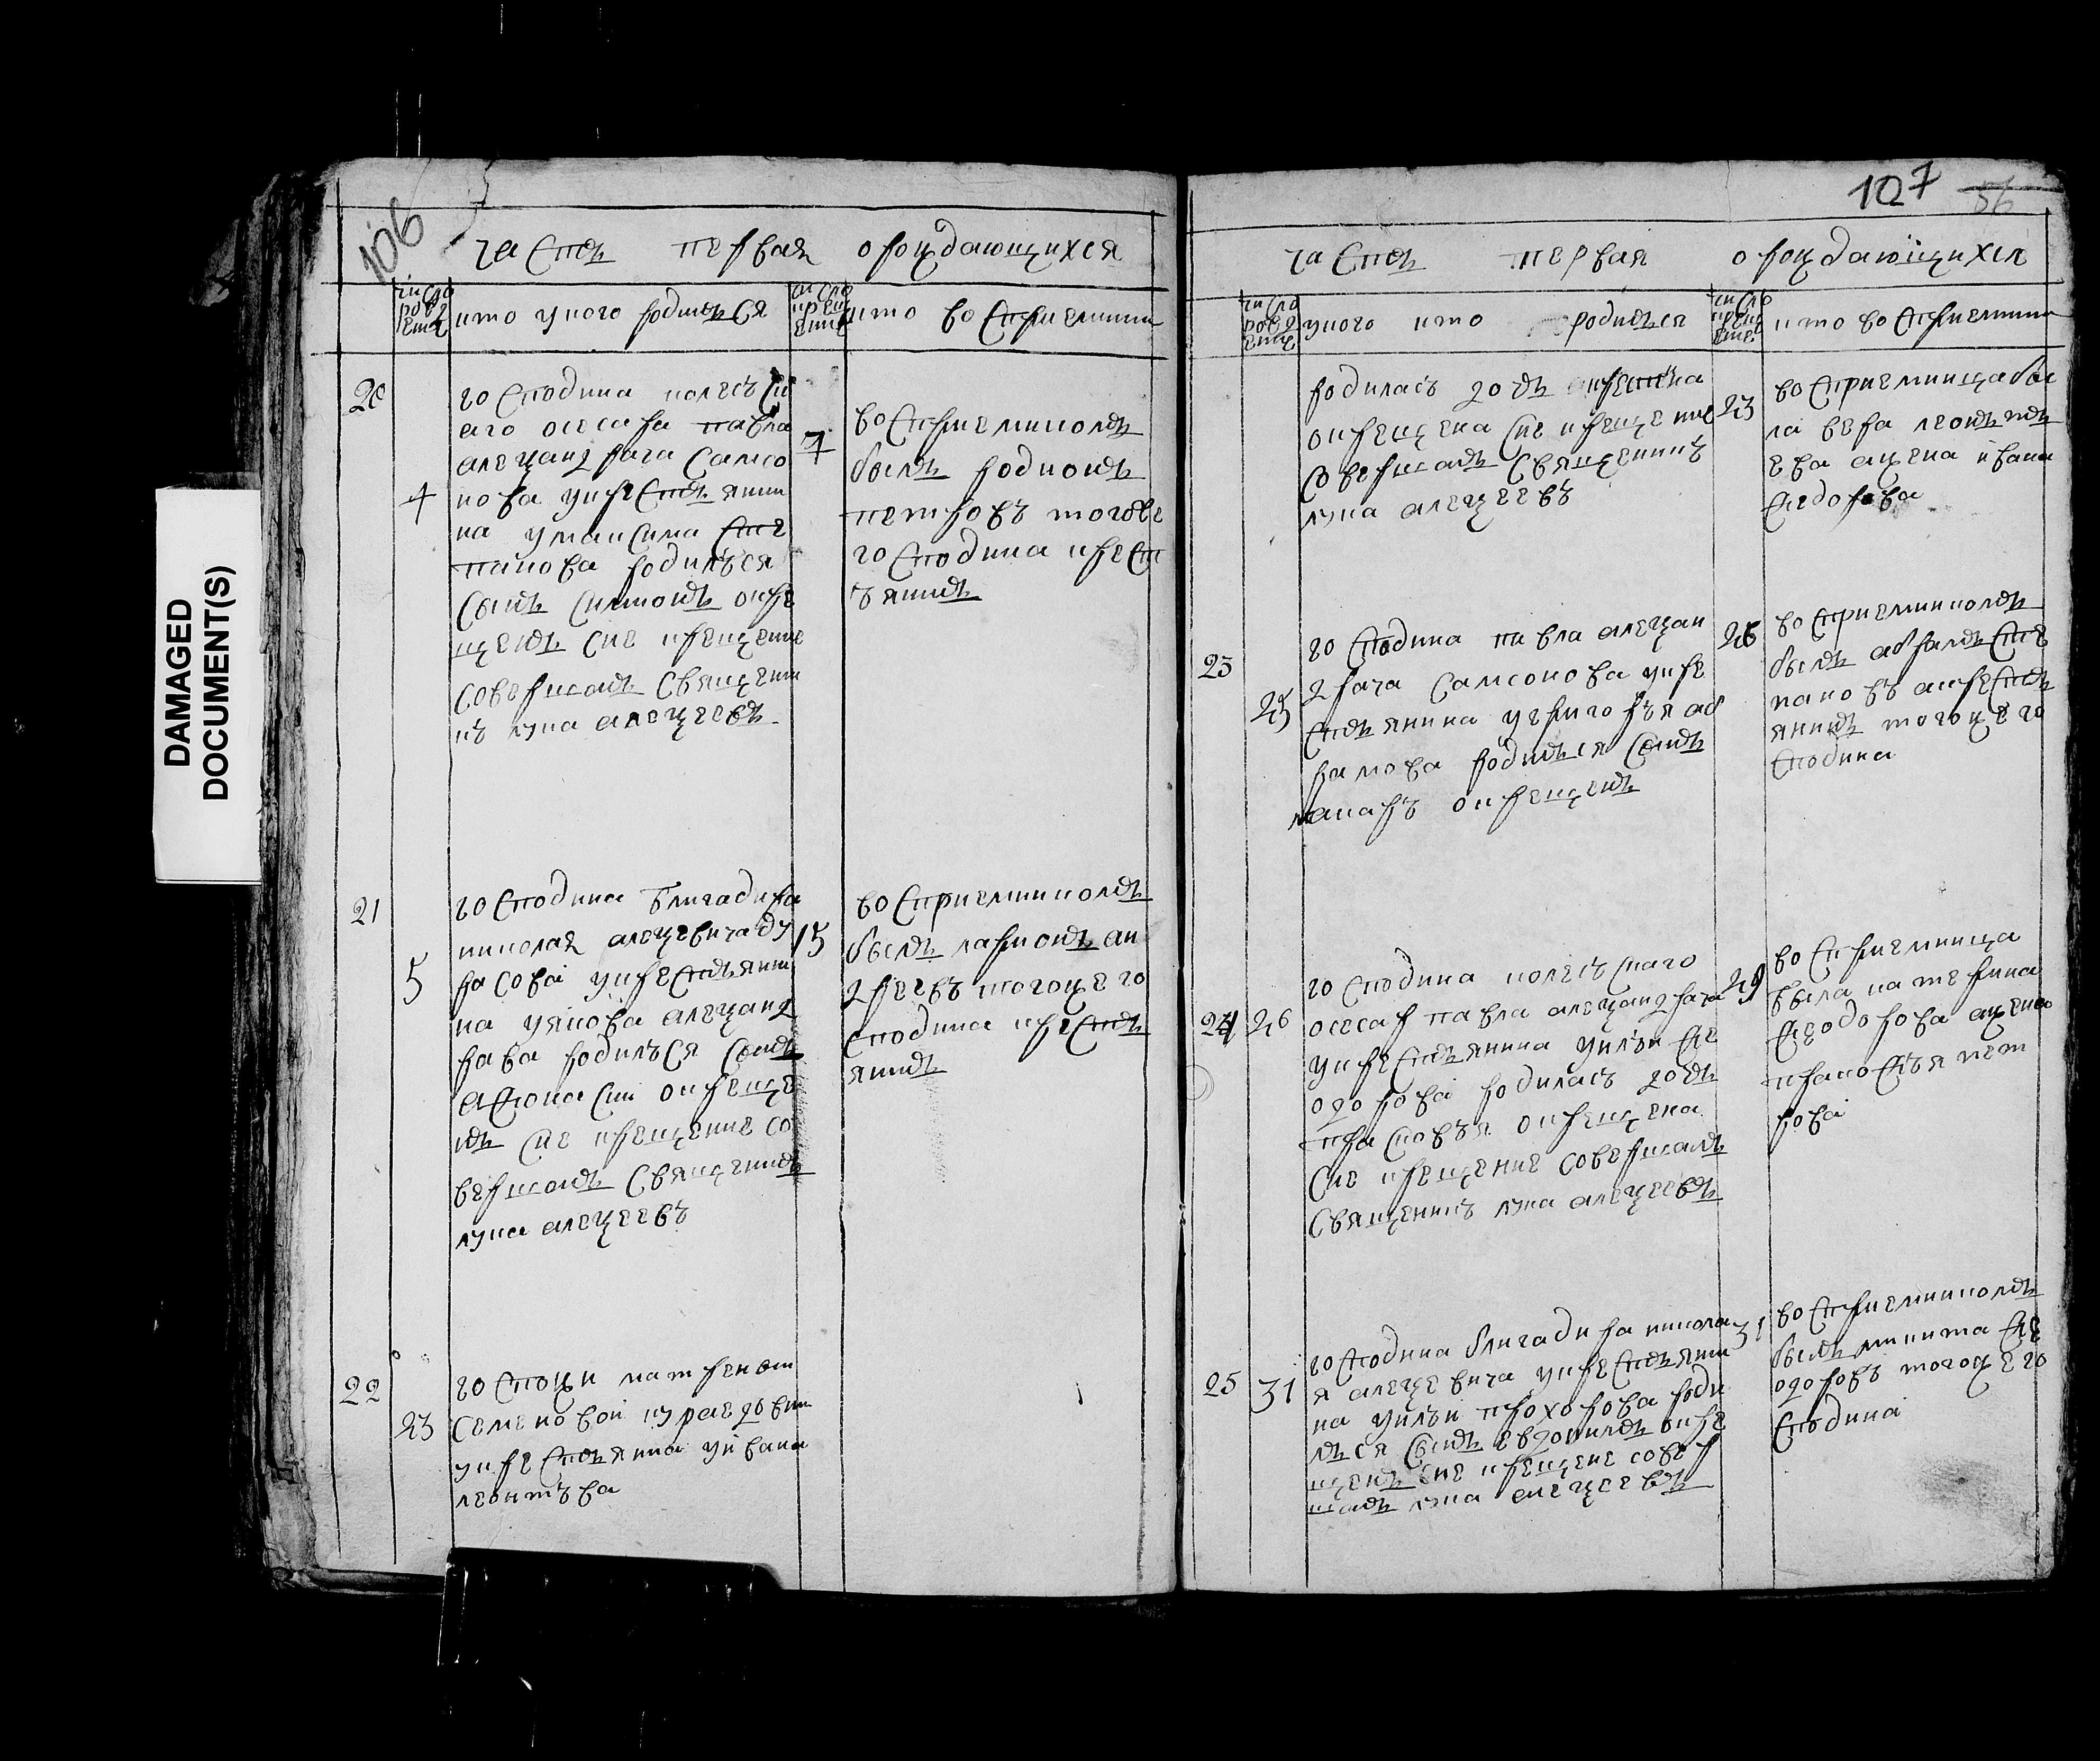 DAMAGED
DOCUMENT(S)
106
часть первая о рождающихся
число рождениа
кто у кого родился
число крещениа
кто восприемники
20
4
господина колежъск
аго осесара павла
александрача самсо
нова у крестьяни
на у максима сте
панова родилъся
сынъ симионъ окре
щенъ сие крещение
совершалъ священи
къ лука алеѯеевъ
7
восприемникомъ
былъ родионъ
петровъ тогоже
господина крест
ъянинъ
21
5
господина бригадира
николая алеѯевича ду
расова у крестьяни
на у якова алеѯанд
рава родилъся сынъ
афонасии окреще
нъ сие крещение со
вершалъ священикъ
лука алеѯеевъ
15
восприемникомъ
былъ ларионъ ан
дреевъ тогоже го
сподина кресть
янинъ
22
23
госпожи катерены
семеновои
у крестьянина у ивана
леонтъва
107
56
часть первая о рождающихся
число рождениа
у кого кто родился
число крещениа
кто восприемники
родилась дочь
окрещена сие крещение
совершалъ священикъ
лука алеѯеевъ
23
восприемница бы
ла вера леонтъ
ева жена ивана
федорова
23
25
господина павла алеѯан
драча самсонова у кре
стьянина у григоръя аб
рамова родился сынъ
макаръ окрещенъ
26
восприемникомъ
былъ абрамъ сте
пановъ крестъ
янинъ тогоже го
сподина
24
26
господина колежскаго
осесар павла александрача
у крестьянина у илъи фе
одорова родилась дочь
прасковъя окрещена
сие крещение совершалъ
священикъ лука алеѯеевъ
29
восприемница
была катерина
феодорова жена
пракофъя пет
рова
25
31
господина бригадира никола
я алеѯевича у крестьяни
на у илъи прохорова роди
лься сынъ евдокимъ окре
щенъ сие крещене совер
шалъ лука алеѯеевъ
31
восприемникомъ
былъ никита фе
одоровъ тогоже го
сподина